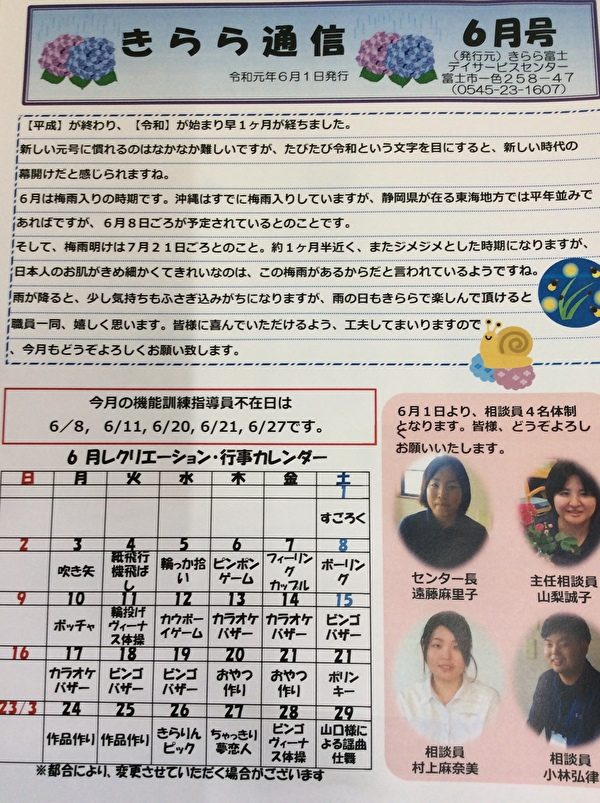 きらら通信
6月号
令和元年6月1日発行
（発行元）きらら富士
デイサービスセンター
富士市一色258－47
（0545-23-1607）
【平成】が終わり、【令和】が始まり早1ヶ月が経ちました。
新しい元号に慣れるのはなかなか難しいですが、たびたび令和という文字を目にすると、新しい時代の
幕開けだと感じられますね。
6月は梅雨入りの時期です。沖縄はすでに梅雨入りしていますが、静岡県が在る東海地方では平年並みで
あればですが、6月8日ごろが予定されているとのことです。
そして、梅雨明けは7月21日ごろとのこと。約1ヶ月半近く、またジメジメとした時期になりますが、
日本人のお肌がきめ細かくてきれいなのは、この梅雨があるからだと言われているようですね。
雨が降ると、少し気持ちもふさぎ込みがちになりますが、雨の日もきららで楽しんで頂けると
職員一同、嬉しく思います。皆様に喜んでいただけるよう、工夫してまいりますので
、今月もどうぞよろしくお願い致します。
今月の機能訓練指導員不在日は
6／8, 6/11, 6/20, 6/21, 6/27です。
6月レクリエーション・行事カレンダー
日 月 火 水 木 金 土
1
すごろく
2 3 4 5 6 7 8
吹き矢 紙飛行機飛ばし 輪っか拾い ピンポンゲーム フィーリングカップル ボーリング
9 10 11 12 13 14 15
ボッチャ 輪投げヴィーナス体操 カウボーイゲーム カラオケバザー カラオケバザー ビンゴバザー
16 17 18 19 20 21 21
カラオケバザー ビンゴバザー ビンゴバザー おやつ作り おやつ作り ボリンキー
23/3 24 25 26 27 28 29
作品作り 作品作り きらりんピック ちゃっきり夢恋人 ビンゴヴィーナス体操 山口様による謡曲仕舞
※都合により、変更させていただく場合がございます
6月1日より、相談員4名体制
となります。皆様、どうぞよろし
く
お願いいたします。
センター長
遠藤麻里子
主任相談員
山梨誠子
相談員
村上麻奈美
相談員
小林弘律